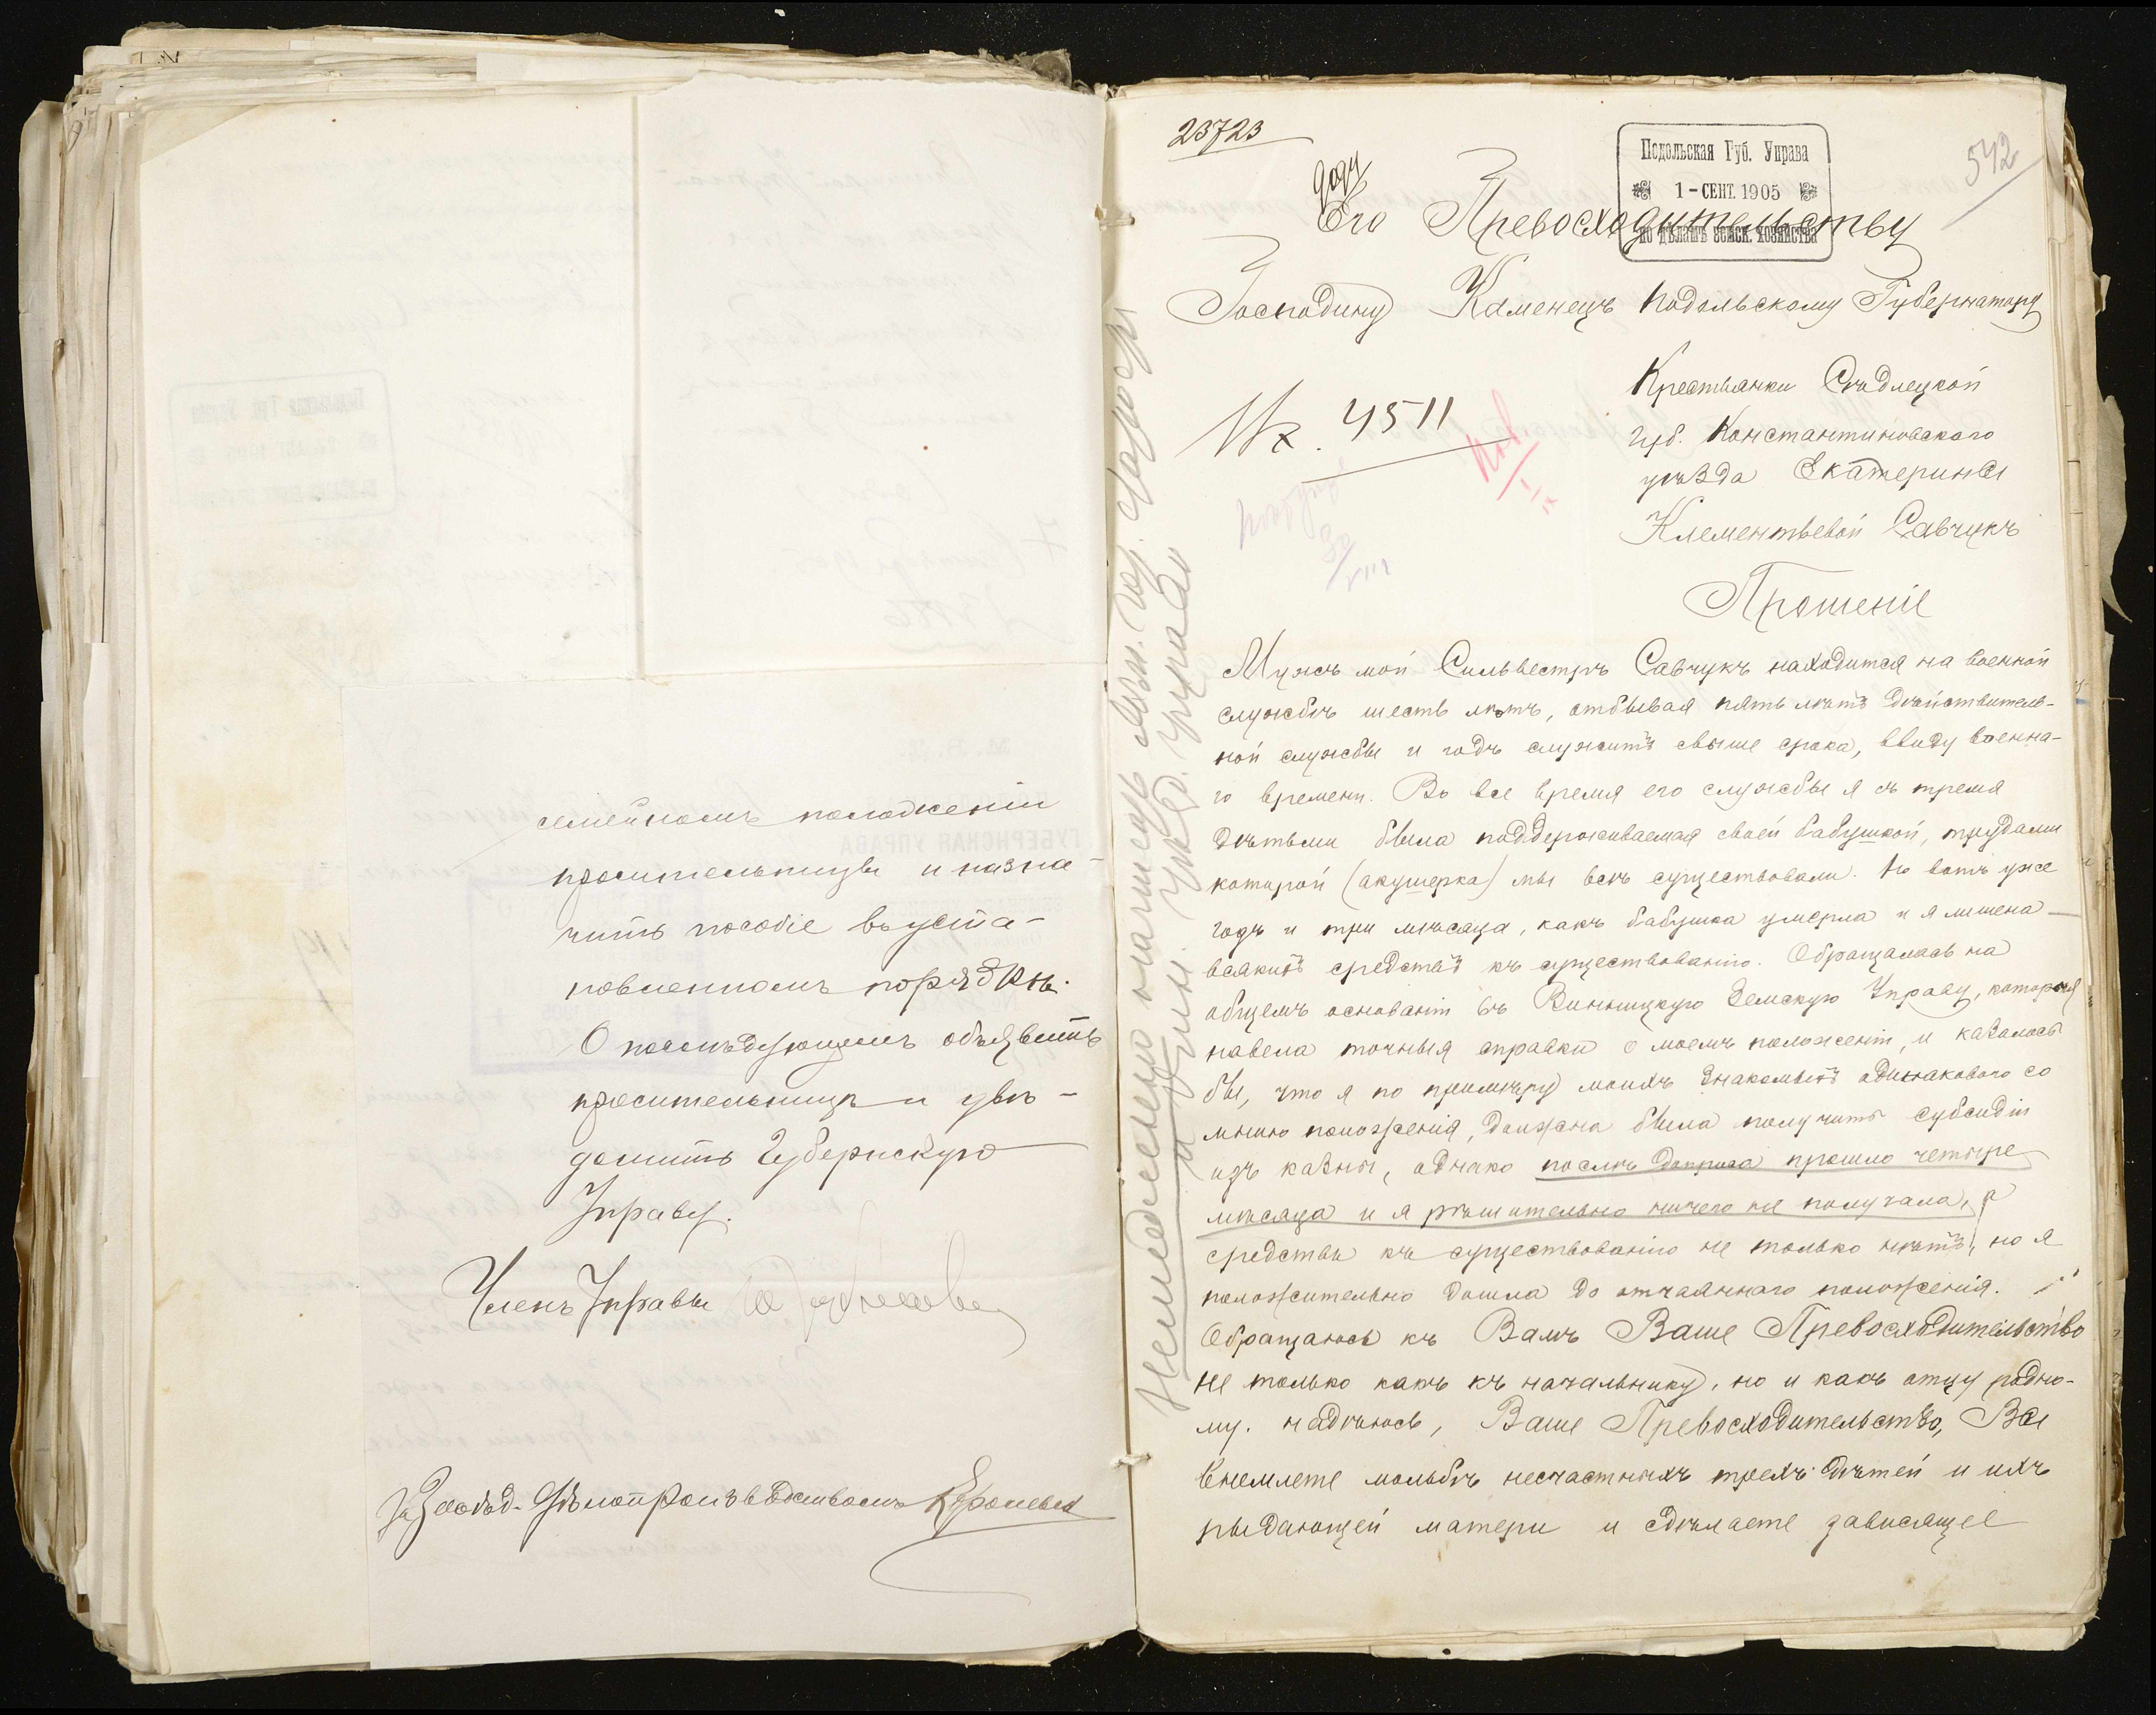 семейномъ положеніи
просительницы и назна-
чить пособіе въ уста-
новленномъ порядкѣ.
О послѣдующемъ объявить
просительницѣ и увѣ-
домить Губернскую
Управу.
Членъ Управы
Завѣд. Дѣлопроизводствомъ
23723
Подольская Губ. Управа
1 - СЕНТ. 1905
по дѣламъ земск. хозяйства
542
Его Превосходительству
Господину Каменецъ Подольскому Губернатору
№ 4511
Крестьянки Сѣдлецкой
губ. Константиновскаго
уѣзда Екатерины
Клементьевой Савчукъ
Прошеніе
Мужъ мой Сильвестръ Савчукъ находится на военной
службѣ шесть лѣтъ, отбывая пять лѣтъ дѣйствитель-
ной службы и годъ служитъ свыше срока, ввиду военна-
го времени. Во все время его службы я съ тремя
дѣтьми была поддерживаемая своей бабушкой, трудами
которой (акушерка) мы всѣ существовали. Но вотъ уже
годъ и три мѣсяца, какъ бабушка умерла и я лишена
всякихъ средствъ къ существованію. Обращалась на
общемъ основаніи въ Винницкую Земскую Управу, которая
навела точныя справки о моемъ положеніи, и казалось
бы, что я по примѣру моихъ знакомыхъ одинаковаго со
мною положенія, должна была получить субсидіи
изъ казны, однако послѣ допроса прошло четыре
мѣсяца и я рѣшительно ничего не получала,
средствъ къ существованію не только нѣтъ, но я
положительно дошла до отчаяннаго положенія.
Обращаюсь къ Вамъ Ваше Превосходительство
не только какъ къ начальнику, но и какъ отцу родно-
му. Надѣюсь, Ваше Превосходительство, Вы
внемлете мольбѣ несчастныхъ трехъ дѣтей и ихъ
рыдающей матери и сдѣлаете зависящее